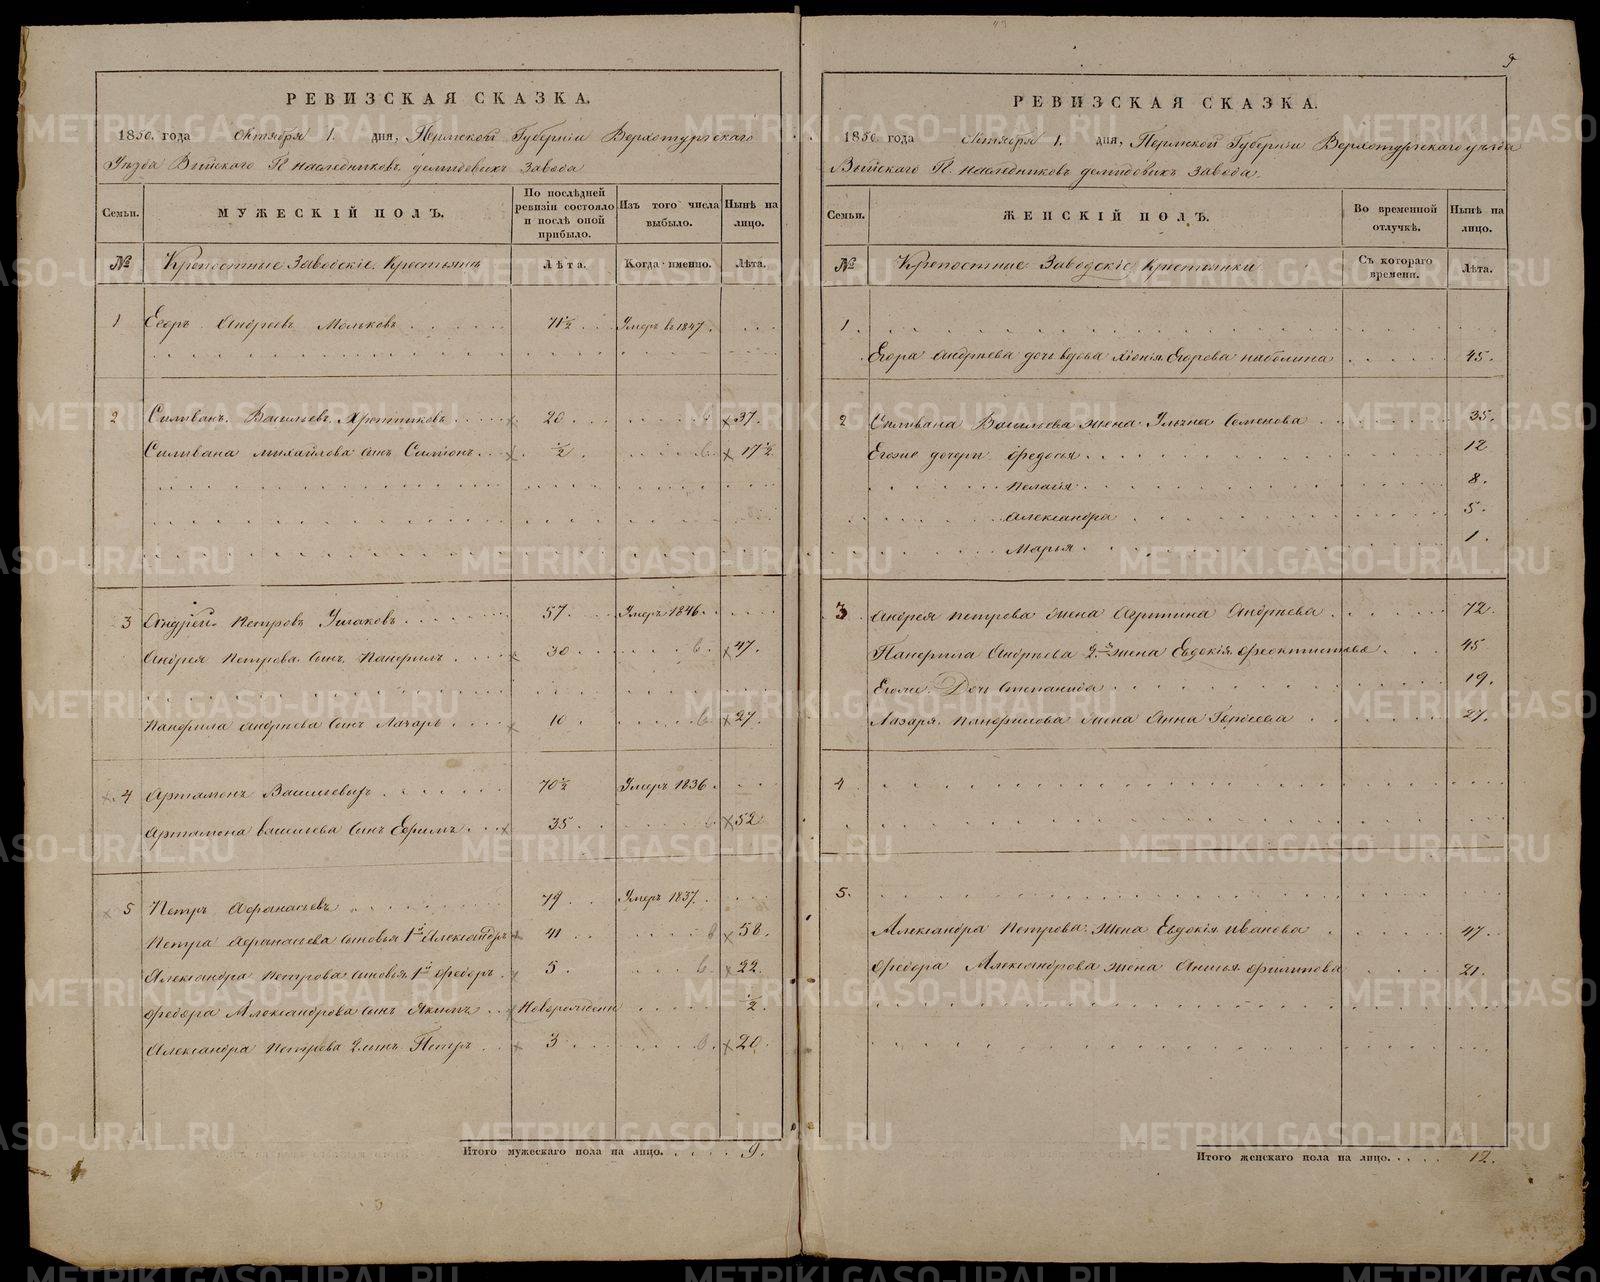 9
РЕВИЗСКАЯ СКАЗКА.
1850. года Октября 1. дня, Пермской Губерніи Верхотурскаго
Уѣзда Выйскаго Н. наслѣдниковъ демидовыхъ Завода
Семьи. МУЖЕСКІЙ ПОЛЪ. По послѣдней ревизіи состояло и послѣ оной прибыло. Изъ того числа выбыло. Нынѣ на лицо.
№ Крепостные Заводскіе Крестьяне Лѣта. Когда именно. Лѣта.
1 Егоръ Андреевъ 71½ Умеръ въ 1847.
2 Силиванъ Васильевъ 20 37.
Силивана Михайлова сынъ Симіонъ ½ 17½
3 Андрей Петровъ Ушаковъ 57 Умеръ 1846.
Андрея Петрова сынъ Панфилъ 30 47.
Панфила Андреева сынъ Лазарь 10 27.
4 Артамонъ Васильевъ 70½ Умеръ 1836
Артамона васильева сынъ Ефимъ 35 52
5 Петръ Афанасьевъ 79 Умеръ 1837.
Петра Афанасьева сыновья 1й Александръ 41 58.
Александра Петрова сыновья 1й Федоръ 5 22
Федора Александрова сынъ Якимъ Новорожденъ ½
Александра Петрова 2 сынъ Петръ 3 20
Итого мужескаго пола на лицо. 9.
РЕВИЗСКАЯ СКАЗКА.
1850 года Октября 1. дня, Пермской Губерніи Верхотурскаго уѣзда
Выйскаго Н. наслѣдниковъ демидовыхъ Завода.
Семьи. ЖЕНСКІЙ ПОЛЪ. Во временной отлучкѣ. Нынѣ на лицо.
№ Крепостные Заводскіе Крестьянки Съ котораго времени. Лѣта.
1.
Егора Андреева дочь вдова Хіонія Егорова 45.
2 Силивана Васильева жена Ульяна Семенова 35.
Егоже дочери Федосья 12
Пелагія 8.
Александра 5.
Марья 1.
3 Андрея петрова жена Агрипина Андреева 72.
Панфила Андреева 2я жена Евдокія Феоктистова 45
Егоже Дочь Степанида 19.
Лазаря Панфилова жена Анна 27.
4
5.
Александра Петрова жена Евдокія Иванова 47
Федора Александрова жена Анисья Филипова 21.
Итого женскаго пола на лицо. 12.
METRIKI.GASO-URAL.RU